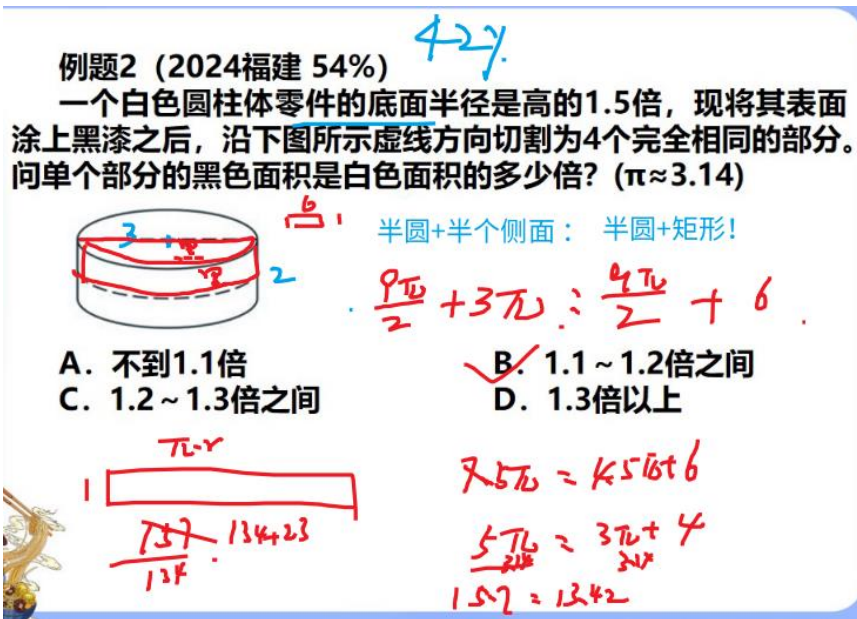 42%
例题2（2024福建 54%）
一个白色圆柱体零件的底面半径是高的1.5倍，现将其表面
涂上黑漆之后，沿下图所示虚线方向切割为4个完全相同的部分。
问单个部分的黑色面积是白色面积的多少倍？(π≈3.14)
6
1
3
2
半圆+半个侧面： 半圆+矩形！
9π/2 + 3π : 9π/2 + 6
A．不到1.1倍
B．1.1～1.2倍之间
C．1.2～1.3倍之间
D．1.3倍以上
π·r
1
7.5π : 4.5π+6
157/134 134+23
5π : 3π+4
3.14 3.14
15.7 : 13.42